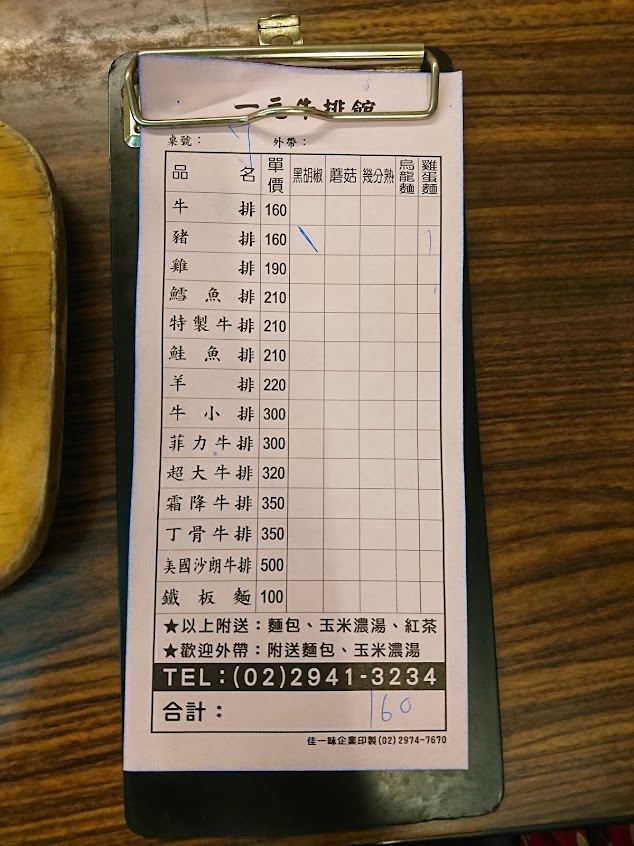 一元牛排館
桌號：
外帶：
品名 單價 黑胡椒 蘑菇 幾分熟 烏龍麵 雞蛋麵
牛排 160
豬排 160
雞排 190
鱈魚排 210
特製牛排 210
鮭魚排 210
羊排 220
牛小排 300
菲力牛排 300
超大牛排 320
霜降牛排 350
丁骨牛排 350
美國沙朗牛排 500
鐵板麵 100
★以上附送：麵包、玉米濃湯、紅茶
★歡迎外帶：附送麵包、玉米濃湯
TEL：(02)2941-3234
合計： 160
佳一味企業印製(02)2974-7670